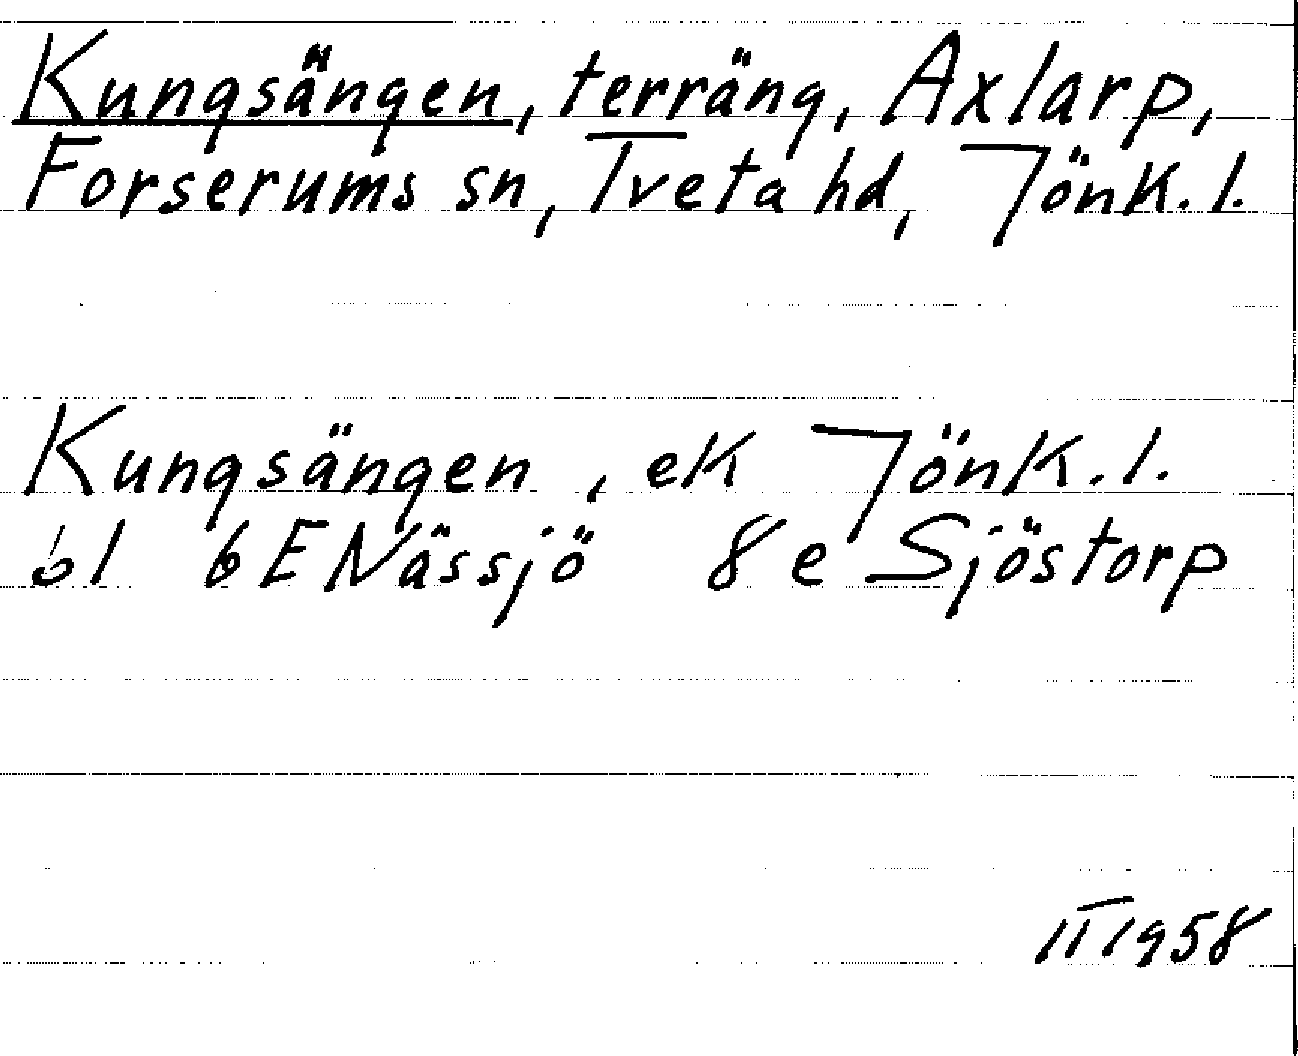 Kungsängen, terräng, Axlarp,
Forserums sn, Tveta hd, Jönk. l.
Kungsängen, ek Jönk. l.
bl 6E Nässjö 8e Sjöstorp
II 1958